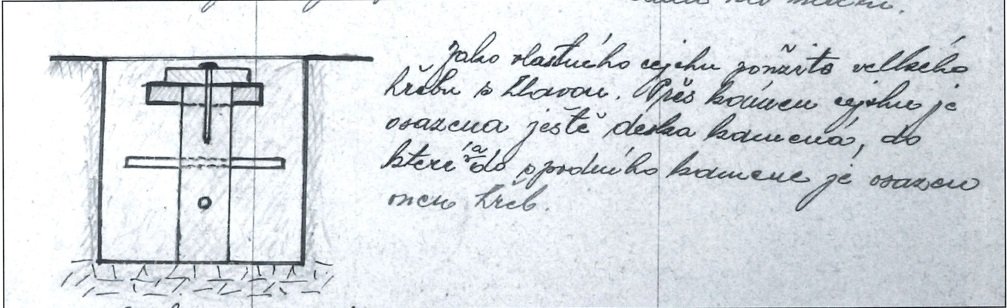 Jako vlastního cejchu použito velkého
hřebu s hlavou. Přes kámen cejchu je
osazena ještě deska kamená, do
které a do spodního kamene je osazen
onen hřeb.